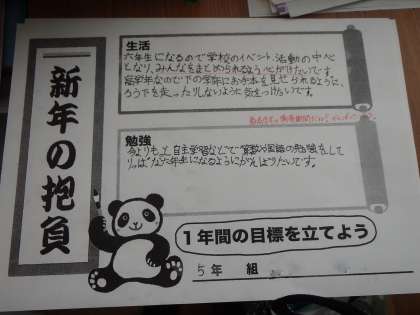 新年の抱負
生活
六年生になるので学校のイベント、活動の中心
となり、みんなをまとめられるよう心がけたいです。
最高学年なので下の学年にお手本を見せられるように、
ろう下を走ったりしないように気をつけたいです。
勉強
今よりもっと自主学習などで算数や国語の勉強をして
りっぱな六年生になるようにがんばりたいです。
1年間の目標を立てよう
5年 組